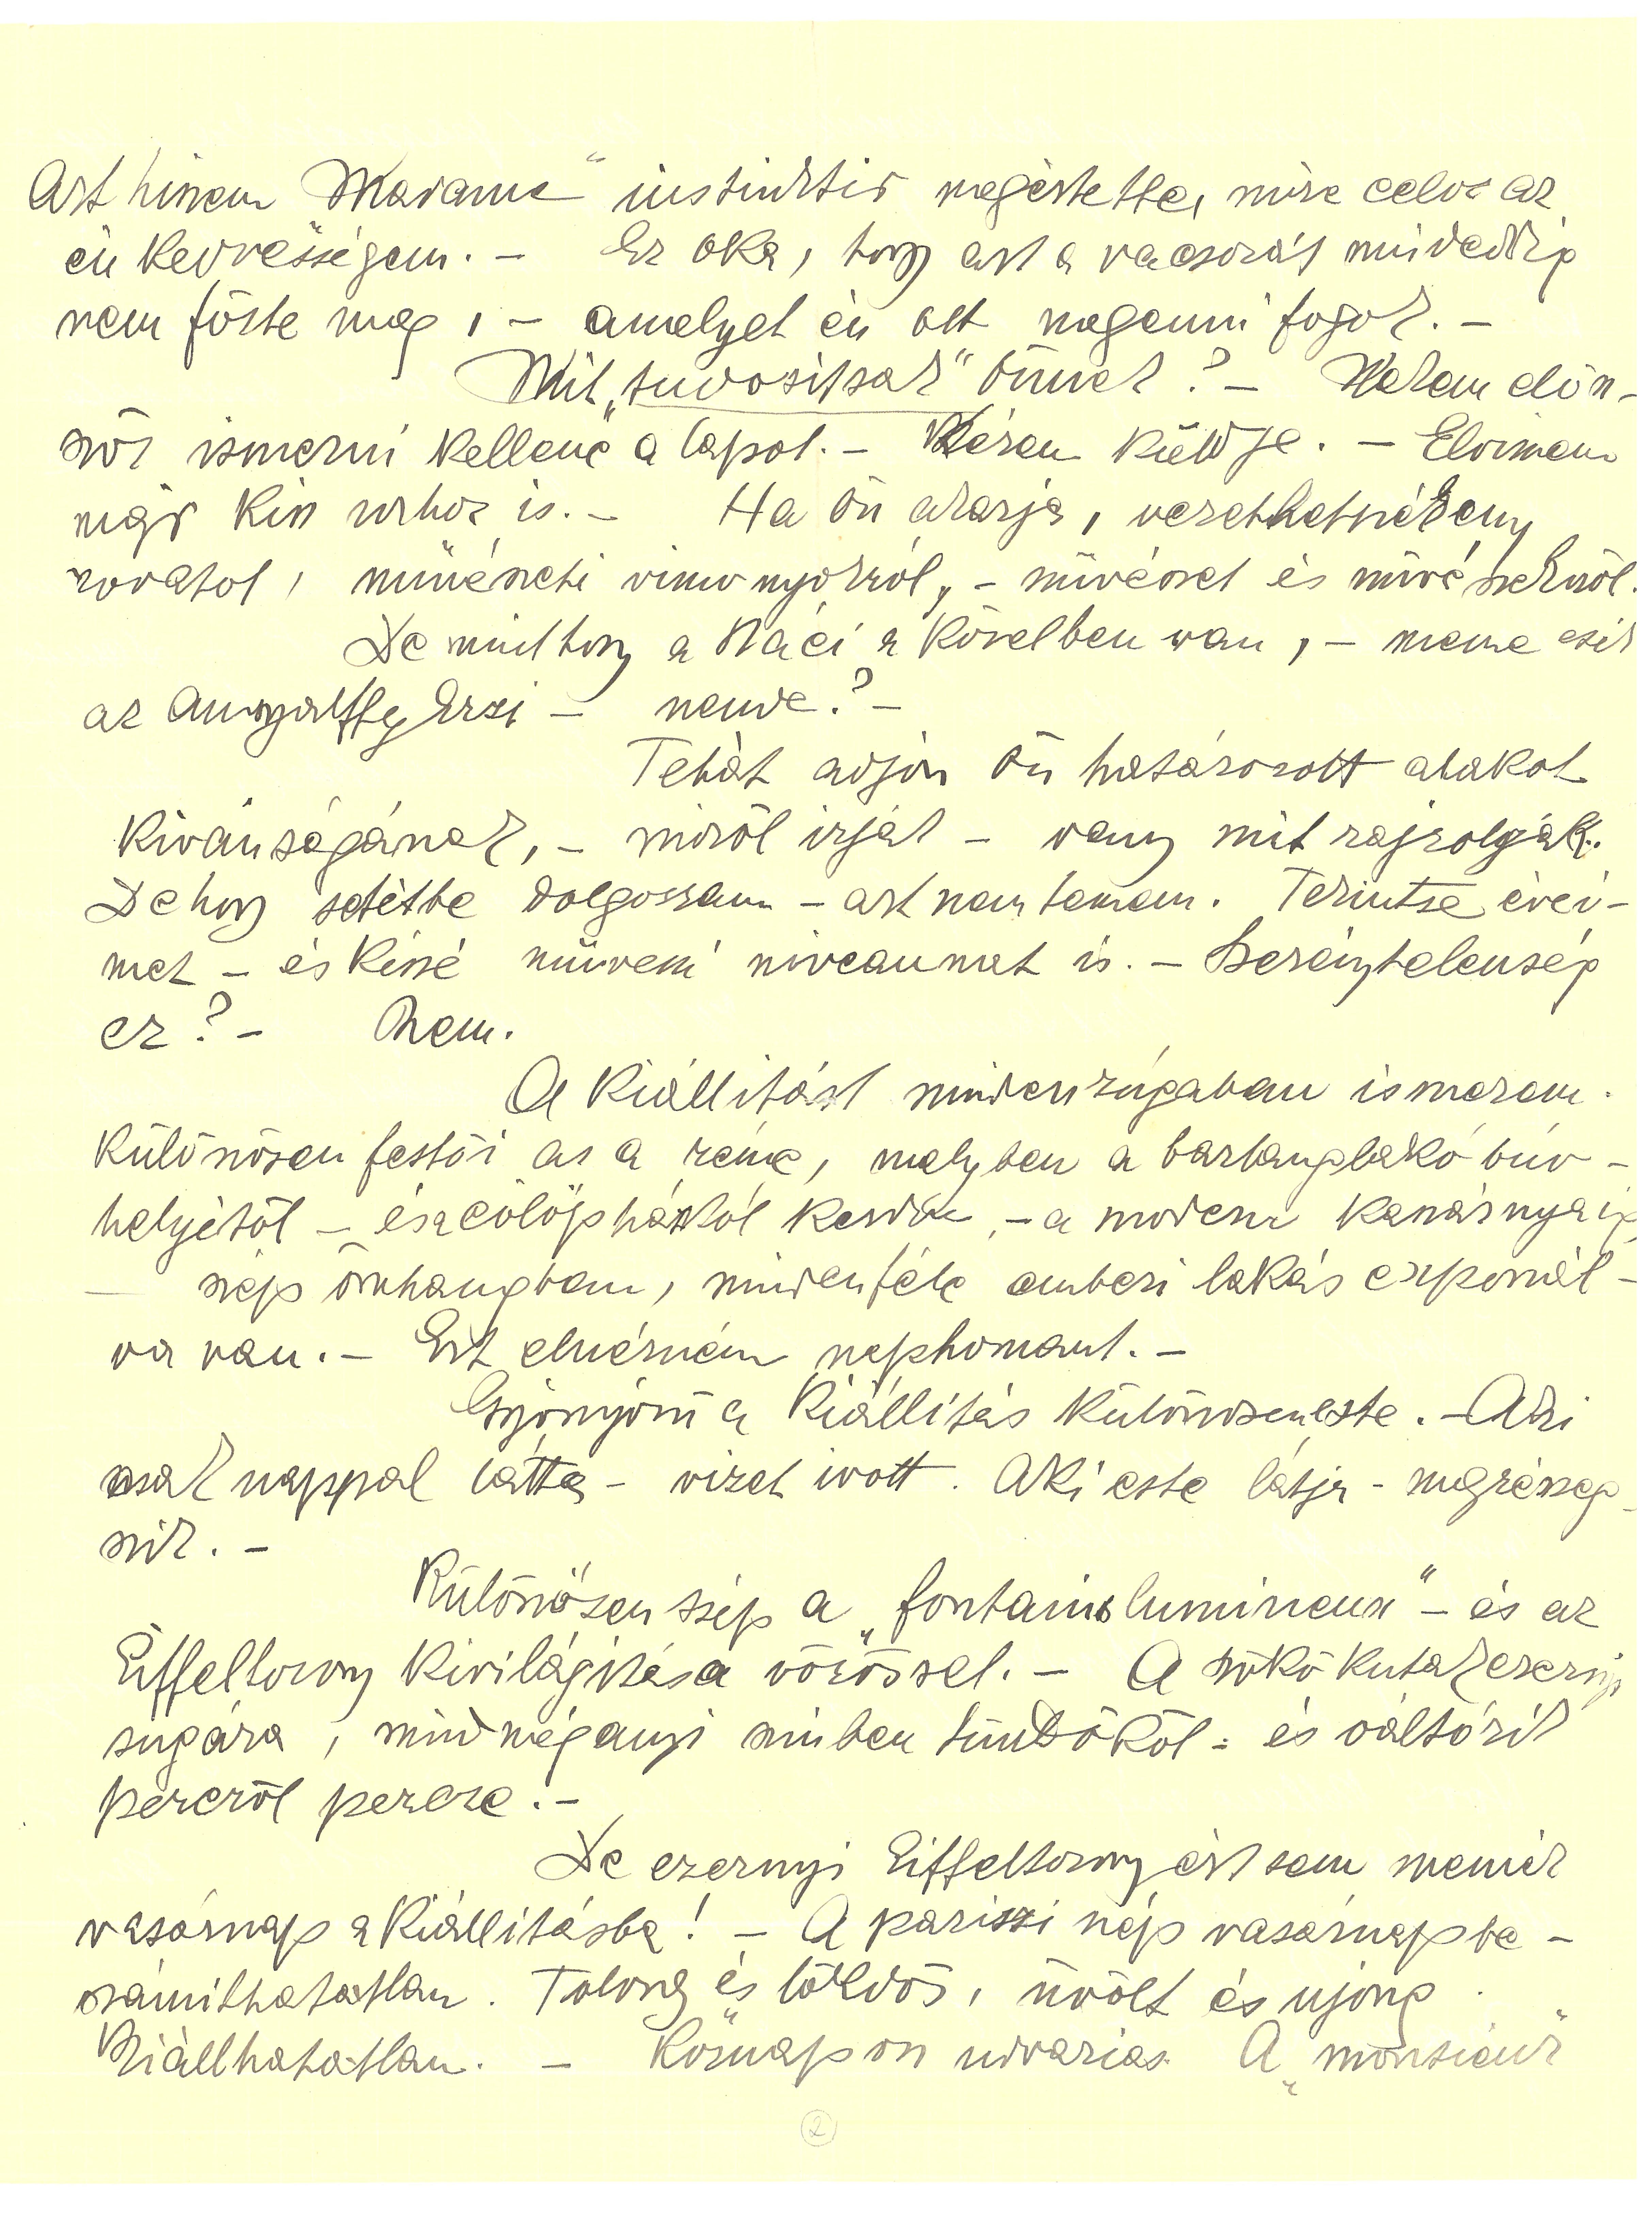 Azt hiszem „Madame" instinktiv megértette, mire céloz az
én kedvességem. – Ez oka, hogy azt a vacsorát mindeddig
nem főzte meg, – amelyet én ott megenni fogok. –
Mit „tudósitsak" önnek? – Nekem elő-
ször ismerni kellene a lapot. – Kérem küldje. – Elviszem
majd Kiss úrhoz is. – Ha Ön akarja, vezethetnék egy
rovatot, művészeti viszonyokról, – művészet és művészekről.
De minthogy a Náci a közelben van, – messze esik
az Angyalffy Erzsi – nemde? –
Tehát adjon Ön határozott alakot
kivánságának, – miről irjak – vagy mit rajzoljak.
De hogy sötétbe dolgozzam – azt nem teszem. Tekintse évei-
met – és kissé művészi niveaumat is. – Szerénytelenség
ez? – Nem.
A kiállitást minden zúgában ismerem.
Különösen festői az a része, melyben a barlanglakó búv-
helyétől – és a cölöpháztól kezdve, – a modern kaszárnyáig
– szép összhangban, mindenféle emberi lakás exponál-
va van. – Ezt elnézném naphosszant. –
Gyönyörü a kiállitás különösen este. – Aki
csak nappal látta – vizet ivott. Aki este látja – megrészeg-
szik. –
Különösen szép a „fontains lumineux" – és az
Eiffeltorony kivilágitása vörössel. – A szökőkutak ezernyi
sugára, mind megannyi szinben tündököl – és váltózik
percről percre. –
De ezernyi Eiffeltoronyért sem mennék
vasárnap a kiállitásba! – A pariszi nép vasárnap be-
számithatatlan. Tolong és lökdös, üvölt és ujong.
Kiállhatatlan. – Köznapon udvarias. A „monsieur"
2